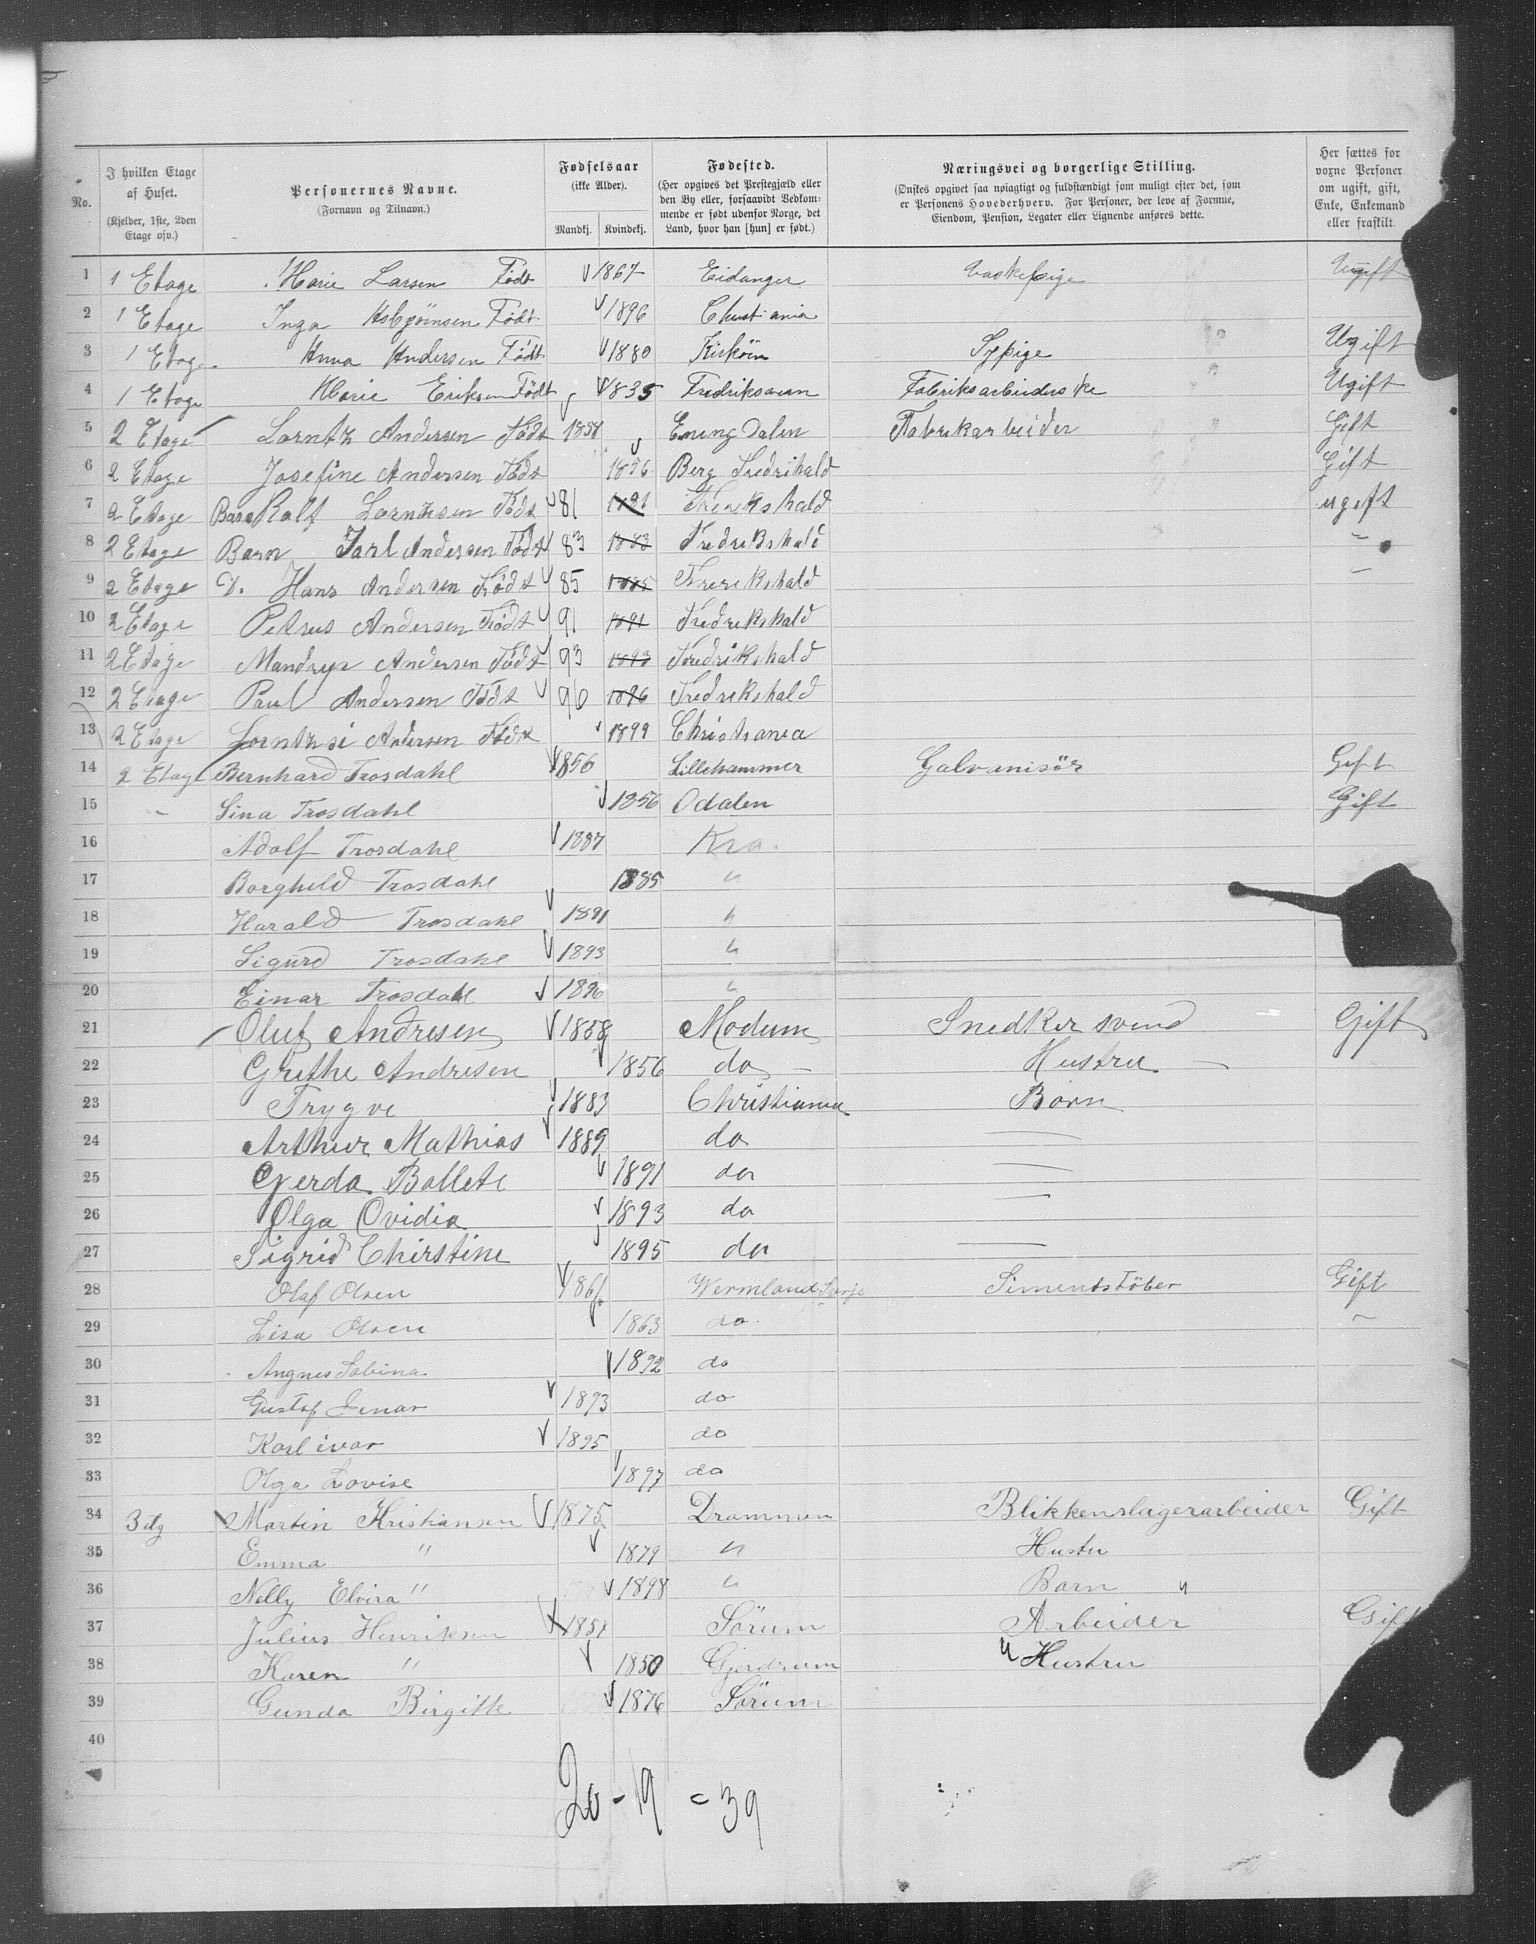 No.
I hvilken Etage af Huset.
(Kjelder, 1ste, 2den Etage osv.)
Personernes Navne.
(Fornavn og Tilnavn.)
Fødselsaar
(ikke Alder).
Mandkj. Kvindekj.
Fødested.
(Her opgives det Prestegjæld eller den By eller, forsaavidt Vedkommende er født udenfor Norge, det Land, hvor han [hun] er født.)
Næringsvei og borgerlige Stilling.
(Ønskes opgivet saa nøiagtigt og fuldstændigt som muligt efter det, som er Personens Hovederhverv. For Personer, der leve af Formue, Eiendom, Pension, Legater eller Lignende anføres dette.
Her sættes for voxne Personer om ugift, gift, Enke, Enkemand eller fraskilt.
1 1 Etage Marie Larsen Født 1867 Eidanger Vaskepige Ugift
2 1 Etage Inga Asbjörnsen Født 1896 Christiania
3 1 Etage Anna Andersen Født 1880 Sypige Ugift
4 1 Etage Marie Eriksen Født 1835 Fabriksarbeiderske Ugift
5 2 Etage Lorntz Andersen Födt Eningdalen Fabrikarbeider Gift
6 2 Etage Josefine Andersen Födt 1856 Berg Fredrikald Gift
7 2 Etage Barn Rolf Lorntzsen Födt 81 Frerikshald ugift
8 2 Etage Barn Jarl Andersen Födt 83 1883 Fredrikshald "
9 2 Etage D. Hans Andersen Födt 85 1885 Frerikshald
10 2 Etage Petrus Andersen Födt 91 1891 Fredrikshald
11 2 Etage Andersen Födt 93 1893 Fredrikshald
12 2 Etage Paul Andersen Födt 96 1896 Fredrikshald
13 2 Etage Lorntzsi Andersen Födt 1899 Christiania
14 2 Etage Bernhard Trosdahl 1856 Lillehammer Galvanisör Gift
15 " Lina Trosdahl 1856 Odalen Gift
16 Adolf Trosdahl 1887 Kra.
17 Borghild Trosdahl 1885 "
18 Harald Trosdahl 1891 "
19 Sigurd Trosdahl 1893 "
20 Einar Trosdahl 1896 "
21 Oluf Andresen 1858 Modum Snedker svend Gift
22 Grethe Andresen 1856 do Hustru
23 Trygve 1883 Christiania Barn
24 Arthur Mathias 1889 do
25 Gerda Ballete 1891 do
26 Olga Ovidia 1893 do
27 Sigrid Chirstine 1895 do
28 Olaf Olsen Wermland Sverje Simentstöber Gift
29 Lisa Olsen 1863 do "
30 Angnes Sabina 1892 do
31 Gustaf Jenar 1893 do
32 Karl ivar 1895 do
33 Olga Lovise 1897 do
34 3 etg Martin Kristiansen 1875 Drammen Blikkenslagerarbeider Gift
35 Emma " 1879 " Hustru
36 Nelly Elvira " 1898 " Barn "
37 Julius Henriksen 1851 Sörum Arbeider Gift
38 Karen " 1850 Gjerdrum " Hustru
39 Gunda Birgitte 1876 Sörum
40
20 - 19 = 39